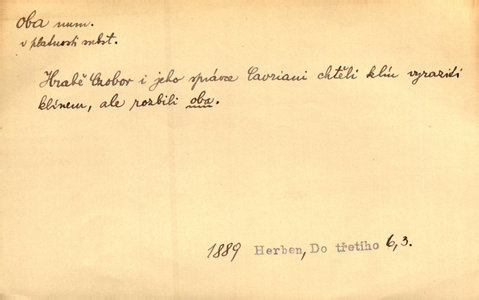 oba num.
v platnosti subst.
Hrabě Czobor i jeho správce Cavriani chtěli klín vyraziti
klínem, ale rozbili oba.
1889 Herben, Do třetího 6,3.